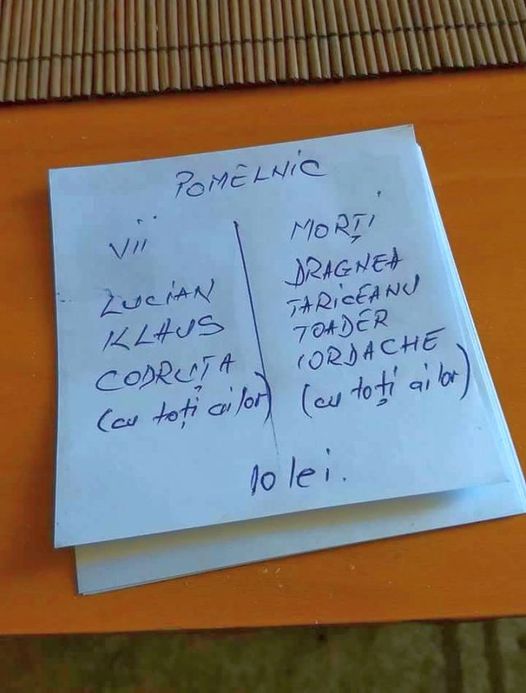 POMELNIC
Vii
LUCIAN
KLAUS
CODRUȚA
(cu toți ai lor)
MORȚI
DRAGNEA
TARICEANU
TOADER
IORDACHE
(cu toți ai lor)
10 lei.